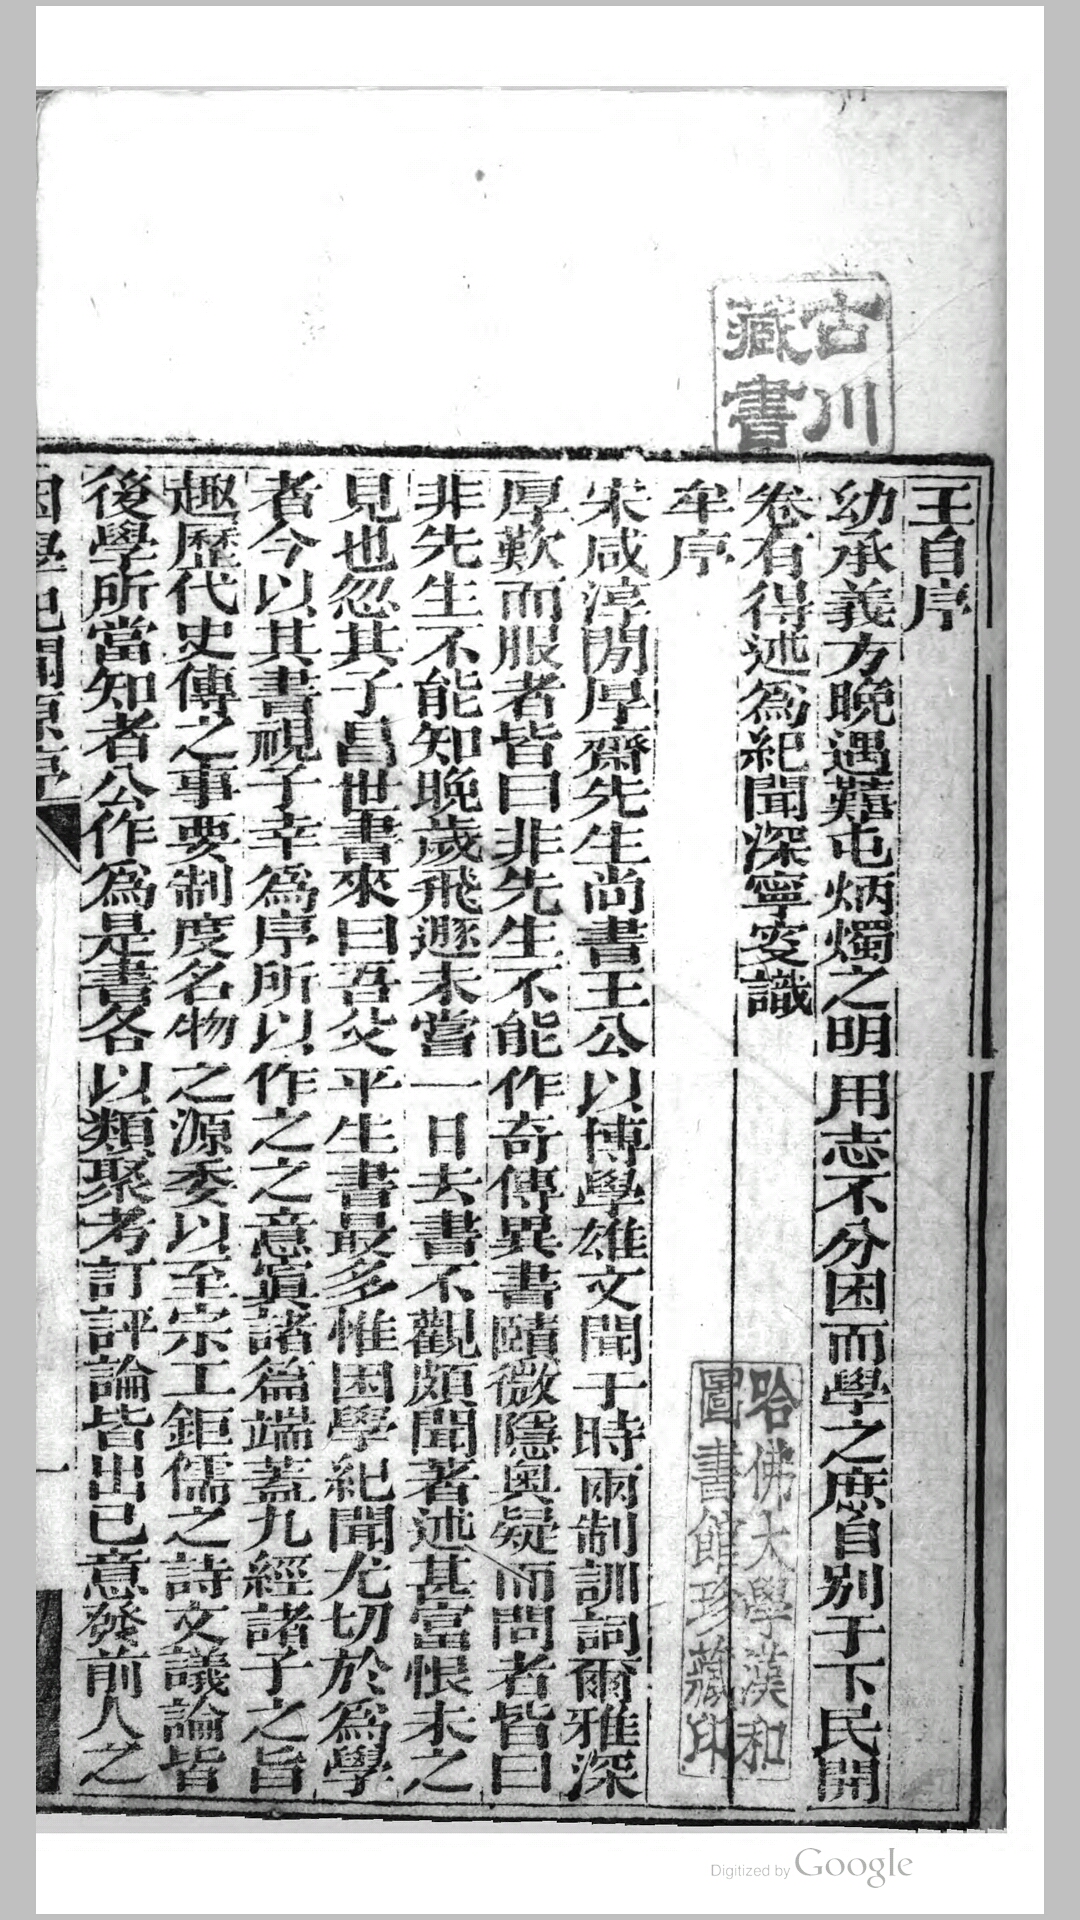 古川
藏書
王自序
幼承義方晚遇囏屯炳燭之明用志不分困而學之庶自别于下民開
卷有得述爲紀聞深寧叜識
牟序
宋咸淳閒厚齋先生尚書王公以博學雄文聞于時兩制訓詞爾雅深
厚歎而服者皆曰非先生不能作奇傳異書賾微隱奥疑而問者皆曰
非先生不能知晚歲飛遯未嘗一日去書不觀頗聞著述甚富恨未之
見也忽其子昌世書來曰吾父平生書最多惟困學紀聞尤切於爲學
者今以其書視子幸爲序所以作之之意寘諸篇端蓋九經諸子之旨
趣歷代史傳之事要制度名物之源委以至宗工鉅儒之詩文議論皆
後學所當知者公作爲是書各以類聚考訂評論皆出己意發前人之
困學紀聞原序
一
哈佛大學漢和
圖書館珍藏印
Digitized by Google